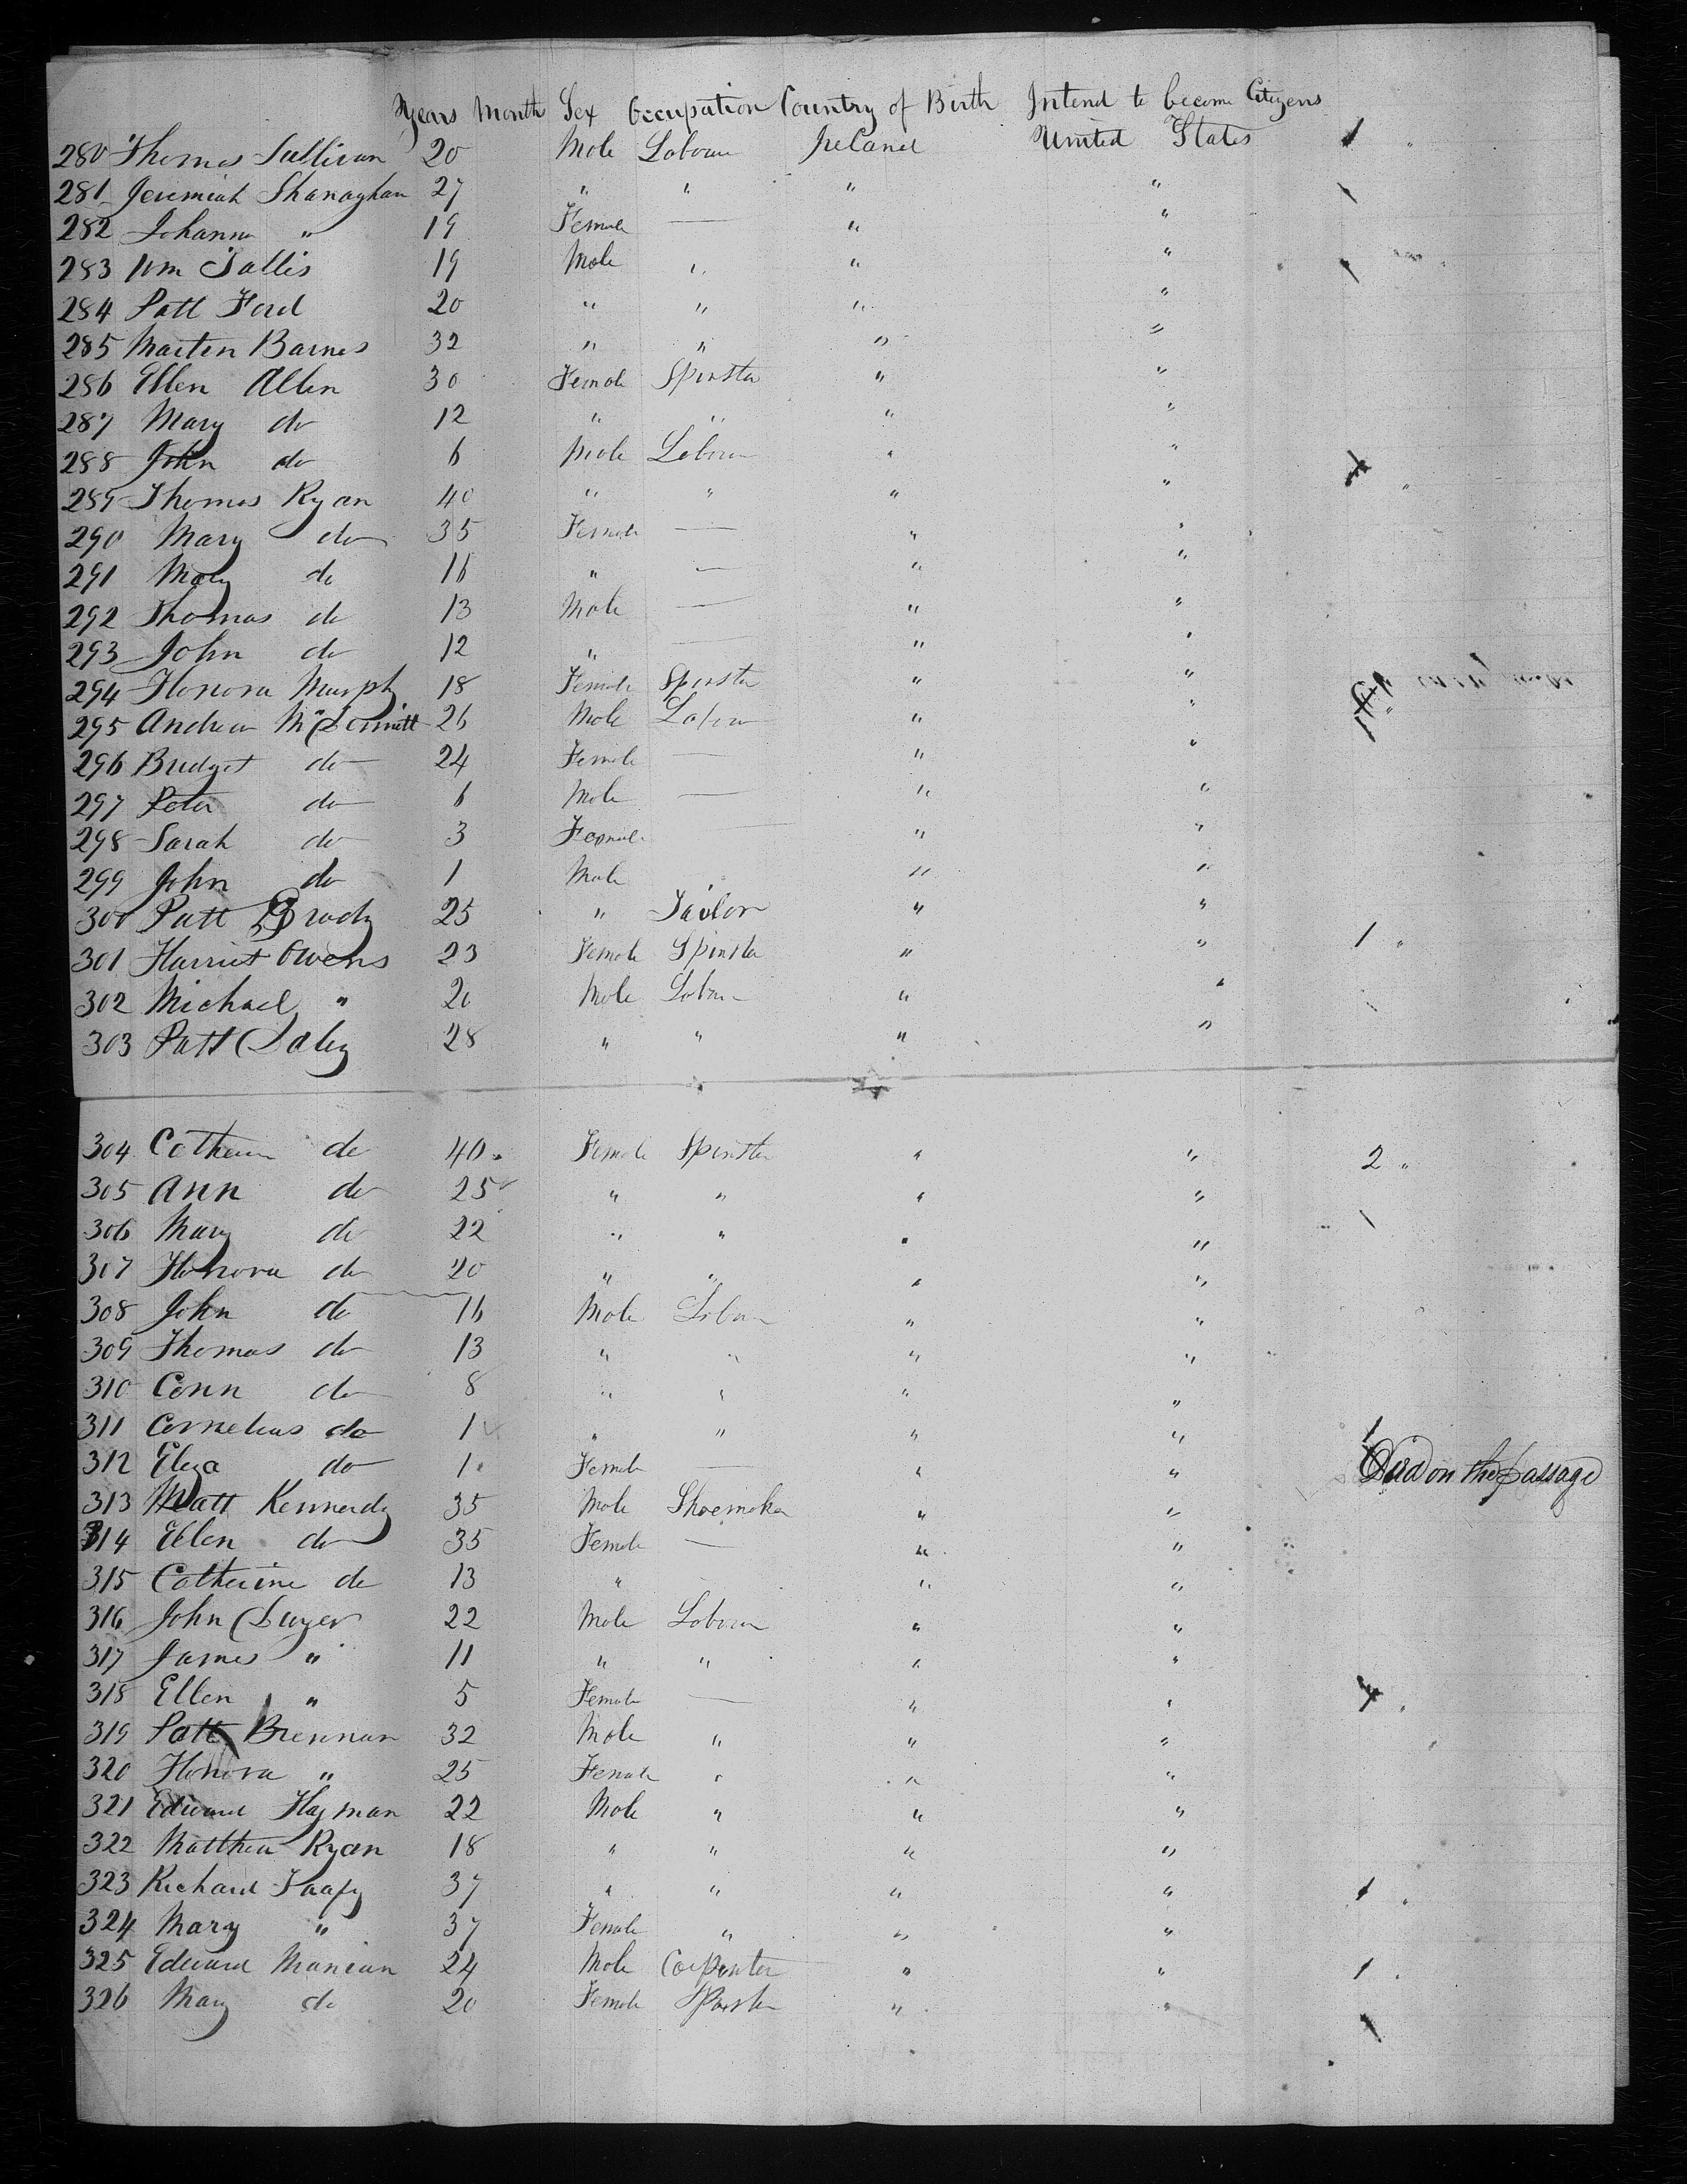 Years Month Sex Occupation Country of Birth Intend to become Citizens
280 Thomas Sullivan 20 Male Labour Ireland United States 1 "
281 Jeremiah Shanaghan 27 " " " "
282 Johanna " 19 Female — " "
283 Wm Tallis 19 Male " " "
284 Patt Ford 20 " " " "
285 Martin Barnes 32 " " " "
286 Ellen Allen 30 Female Spinster " "
287 Mary do 12 " " " "
288 John do 6 Male Labour " "
289 Thomas Ryan 40 " " " "
290 Mary do 35 Female — " "
291 Mary do 16 " — " "
292 Thomas do 13 Male — " "
293 John do 12 " — " "
294 Honora Murphy 18 Female Spinster " "
295 Andrew McDermott 26 Male Labour " "
296 Bridget do 24 Female — " "
297 Peter do 6 Male — " "
298 Sarah do 3 Female — " "
299 John do 1 Male " "
300 Patt Brady 25 " Tailor " "
301 Harriet Owens 23 Female Spinster " " 1 "
302 Michael " 20 Male Labour " "
303 Patt Daley 28 " " " "
304 Catherin do 40 Female Spinster " " 2 "
305 Ann do 25 " " " "
306 Mary do 22 " " " "
307 Honora do 20 " " " "
308 John do 16 Male Labour " "
309 Thomas do 13 " " " "
310 Conn do 8 " " " "
311 Cornelius do 1 " " " " 1
312 Eliza do 1 Female — " " Died on the passage
313 Matt Kennedy 35 Male Shoemaker " "
314 Ellen do 35 Female — " "
315 Catherine do 13 " " "
316 John Dwyer 22 Male Labour " "
317 James " 11 " " " "
318 Ellen " 5 Female — " "
319 Patt Brennan 32 Male " " "
320 Honora " 25 Female " " "
321 Edward Hayman 22 Male " " "
322 Matthew Ryan 18 " " " "
323 Richard 37 " " " " 1 "
324 Mary " 37 Female " " "
325 Edward Manian 24 Male Carpenter " " 1 "
326 Mary do 20 Female Spinster " "